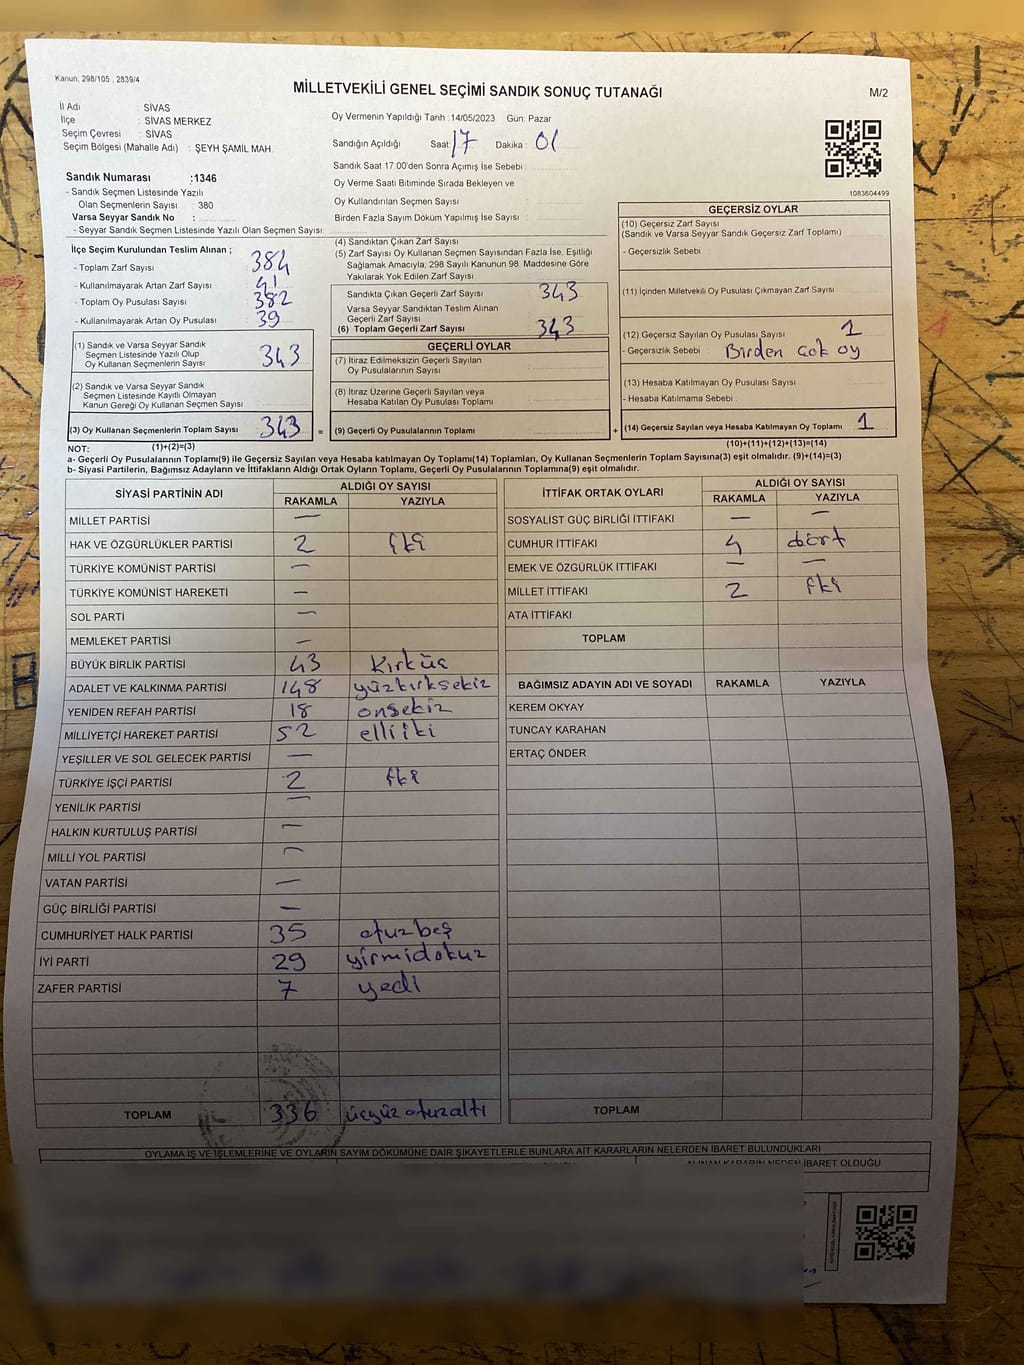 Kanun: 298/105 , 2839/4
MİLLETVEKİLİ GENEL SEÇİMİ SANDIK SONUÇ TUTANAĞI
M/2
İl Adı : SİVAS
İlçe : SİVAS MERKEZ
Seçim Çevresi : SİVAS
Seçim Bölgesi (Mahalle Adı) : ŞEYH ŞAMİL MAH.
Oy Vermenin Yapıldığı Tarih :14/05/2023 Gün: Pazar
Sandığın Açıldığı Saat: 17 Dakika : 01
Sandık Saat 17.00'den Sonra Açımış İse Sebebi :
Oy Verme Saati Bitiminde Sırada Bekleyen ve
Oy Kullandırılan Seçmen Sayısı :
Birden Fazla Sayım Döküm Yapılmış İse Sayısı :
1083604499
Sandık Numarası :1346
- Sandık Seçmen Listesinde Yazılı
Olan Seçmenlerin Sayısı : 380
Varsa Seyyar Sandık No :
- Seyyar Sandık Seçmen Listesinde Yazılı Olan Seçmen Sayısı:
İlçe Seçim Kurulundan Teslim Alınan ;
- Toplam Zarf Sayısı : 384
- Kullanılmayarak Artan Zarf Sayısı : 41
- Toplam Oy Pusulası Sayısı : 382
- Kullanılmayarak Artan Oy Pusulası : 39
(1) Sandık ve Varsa Seyyar Sandık
Seçmen Listesinde Yazılı Olup
Oy Kullanan Seçmenlerin Sayısı : 343
(2) Sandık ve Varsa Seyyar Sandık
Seçmen Listesinde Kayıtlı Olmayan
Kanun Gereği Oy Kullanan Seçmen Sayısı :
(3) Oy Kullanan Seçmenlerin Toplam Sayısı : 343 =
(1)+(2)=(3)
(4) Sandıktan Çıkan Zarf Sayısı :
(5) Zarf Sayısı Oy Kullanan Seçmen Sayısından Fazla İse, Eşitliği
Sağlamak Amacıyla, 298 Sayılı Kanunun 98. Maddesine Göre
Yakılarak Yok Edilen Zarf Sayısı :
Sandıkta Çıkan Geçerli Zarf Sayısı : 343
Varsa Seyyar Sandıktan Teslim Alınan
Geçerli Zarf Sayısı :
(6) Toplam Geçerli Zarf Sayısı : 343
GEÇERLİ OYLAR
(7) İtiraz Edilmeksizin Geçerli Sayılan
Oy Pusulalarının Sayısı :
(8) İtiraz Üzerine Geçerli Sayılan veya
Hesaba Katılan Oy Pusulası Toplamı :
(9) Geçerli Oy Pusulalarının Toplamı : +
GEÇERSİZ OYLAR
(10) Geçersiz Zarf Sayısı :
(Sandık ve Varsa Seyyar Sandık Geçersiz Zarf Toplamı)
- Geçersizlik Sebebi :
(11) İçinden Milletvekili Oy Pusulası Çıkmayan Zarf Sayısı :
(12) Geçersiz Sayılan Oy Pusulası Sayısı : 1
- Geçersizlik Sebebi : Birden çok oy
(13) Hesaba Katılmayan Oy Pusulası Sayısı :
- Hesaba Katılmama Sebebi :
(14) Geçersiz Sayılan veya Hesaba Katılmayan Oy Toplamı : 1
(10)+(11)+(12)+(13)=(14)
NOT:
a- Geçerli Oy Pusulalarının Toplamı(9) ile Geçersiz Sayılan veya Hesaba katılmayan Oy Toplamı(14) Toplamları, Oy Kullanan Seçmenlerin Toplam Sayısına(3) eşit olmalıdır. (9)+(14)=(3)
b- Siyasi Partilerin, Bağımsız Adayların ve İttifakların Aldığı Ortak Oyların Toplamı, Geçerli Oy Pusulalarının Toplamına(9) eşit olmalıdır.
SİYASİ PARTİNİN ADI ALDIĞI OY SAYISI
RAKAMLA YAZIYLA
MİLLET PARTİSİ —
HAK VE ÖZGÜRLÜKLER PARTİSİ 2 iki
TÜRKİYE KOMÜNİST PARTİSİ —
TÜRKİYE KOMÜNİST HAREKETİ —
SOL PARTİ —
MEMLEKET PARTİSİ —
BÜYÜK BİRLİK PARTİSİ 43 Kırküç
ADALET VE KALKINMA PARTİSİ 148 yüzkırksekiz
YENİDEN REFAH PARTİSİ 18 onsekiz
MİLLİYETÇİ HAREKET PARTİSİ 52 elliiki
YEŞİLLER VE SOL GELECEK PARTİSİ —
TÜRKİYE İŞÇİ PARTİSİ 2 iki
YENİLİK PARTİSİ —
HALKIN KURTULUŞ PARTİSİ —
MİLLİ YOL PARTİSİ —
VATAN PARTİSİ —
GÜÇ BİRLİĞİ PARTİSİ —
CUMHURİYET HALK PARTİSİ 35 otuzbeş
İYİ PARTİ 29 yirmidokuz
ZAFER PARTİSİ 7 yedi
TOPLAM 336 üçyüzotuzaltı
İTTİFAK ORTAK OYLARI ALDIĞI OY SAYISI
RAKAMLA YAZIYLA
SOSYALİST GÜÇ BİRLİĞİ İTTİFAKI — —
CUMHUR İTTİFAKI 4 dört
EMEK VE ÖZGÜRLÜK İTTİFAKI — —
MİLLET İTTİFAKI 2 iki
ATA İTTİFAKI
TOPLAM
BAĞIMSIZ ADAYIN ADI VE SOYADI RAKAMLA YAZIYLA
KEREM OKYAY
TUNCAY KARAHAN
ERTAÇ ÖNDER
TOPLAM
OYLAMA İŞ VE İŞLEMLERİNE VE OYLARIN SAYIM DÖKÜMÜNE DAİR ŞİKAYETLERLE BUNLARA AİT KARARLARIN NELERDEN İBARET BULUNDUKLARI
ALINAN KARARIN NEDEN İBARET OLDUĞU